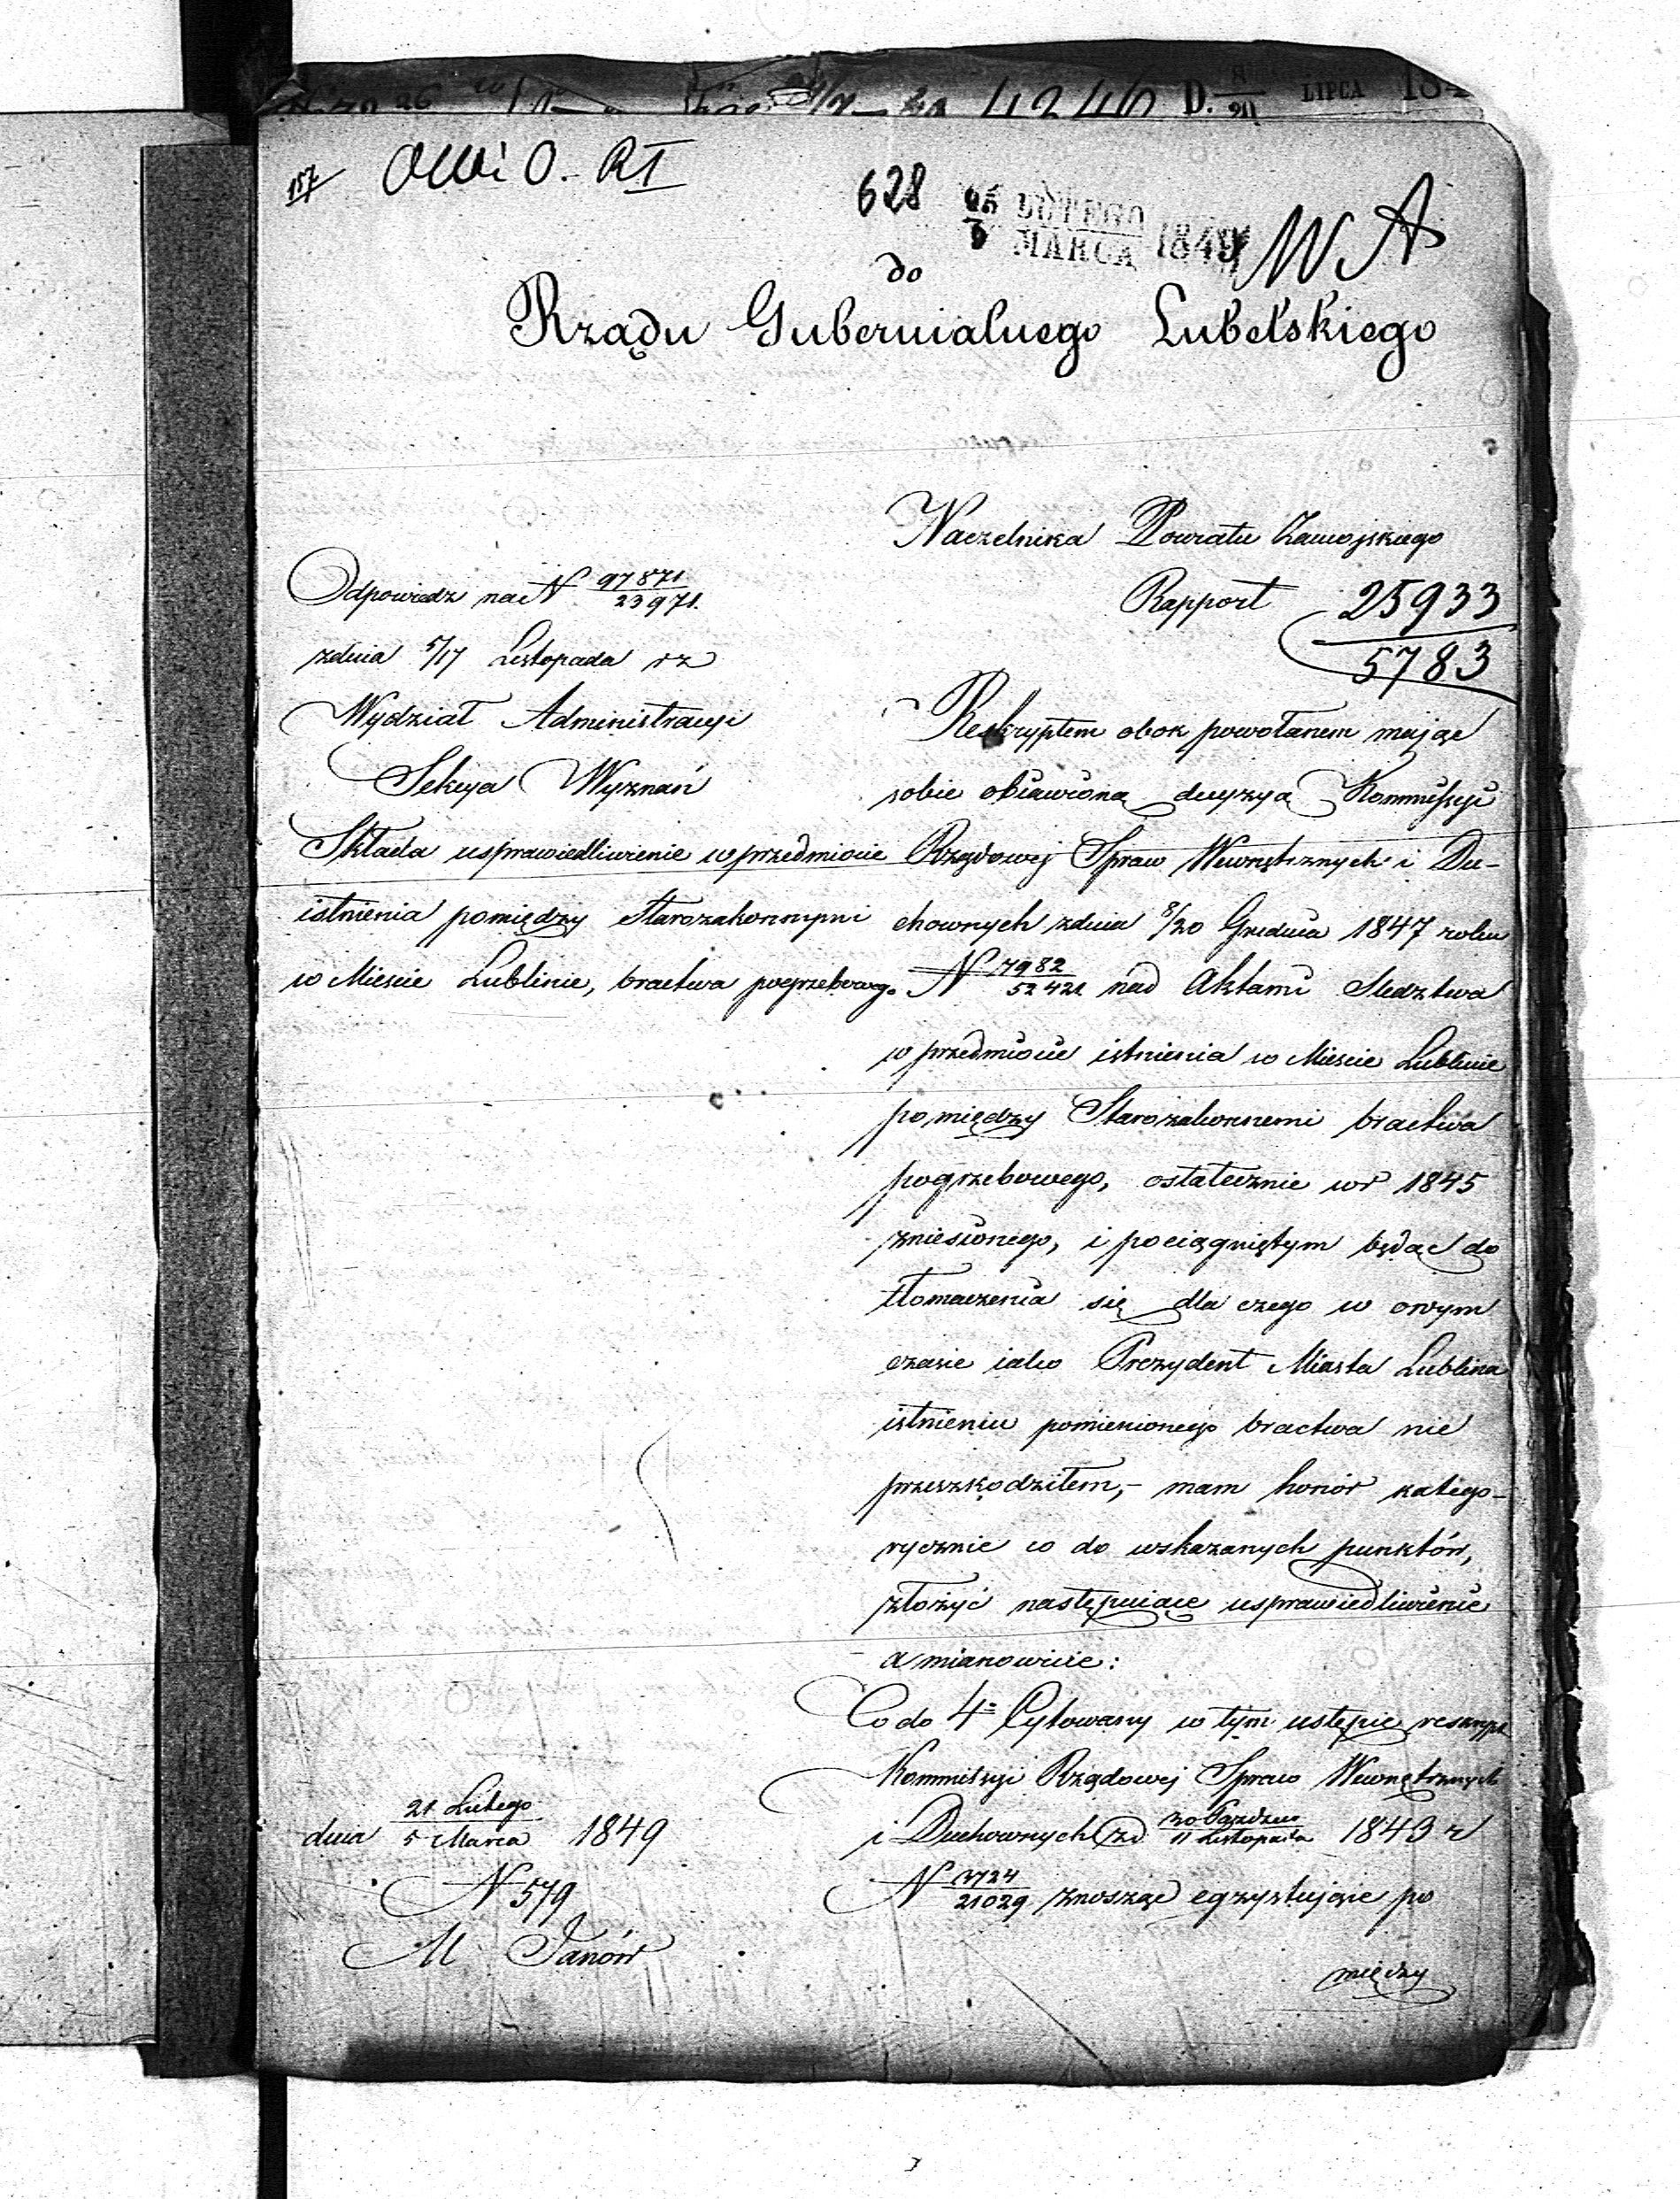 4246 D. 8/20 LIPCA 184
157
628
LUTEGO
MARCA 1849
W A
do
Rządu Gubernialnego Lubelskiego
Naczelnika Powiatu Zamojskiego
Rapport 25933/5783
Odpowiedź na N 97871/23971.
zdnia 5/17 Listopada rz
Wydział Administracyi
Sekcya Wyznań
Składa usprawiedliwienie w przedmiocie
istnienia pomiędzy Starozakonnymi
w Mieście Lublinie, bractwa pogrzebowego.
Reskryptem obok powołanem mając
sobie obiawioną decyzyą Kommissyi
Rządowej Spraw Wewnętrznych i Du-
chownych zdnia 8/20 Grudnia 1847 roku
N 7982/52421 nad Aktami Sledztwa
w przedmiocie istnienia w Mieście Lublinie
pomiędzy Starozakonnemi bractwa
pogrzebowego, ostatecznie wr 1845
zniesionego, i pociągniętym będąc do
tłomaczenia się dla czego w owym
czasie iako Prezydent Miasta Lublina
istnieniu pomienionego bractwa nie
przeszkodziłem,- mam honor katego-
rycznie co do wskazanych punktów,
złożyć następuiące usprawiedliwienie
a mianowicie:
Co do 4= Cytowany w tym ustępie reskrypt
Kommissyi Rządowej Spraw Wewnętrznych
i Duchownych zd 30 Pazdzier/11 Listopada 1843 r
N 3724/21029 znosząc egzystujące po
między
dnia 21 Lutego/5 Marca 1849
N 579
M Janów